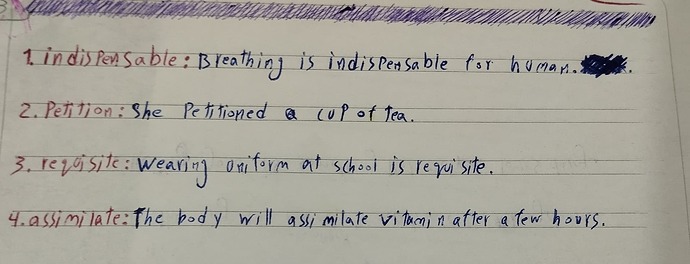 1. indispensable: Breathing is indispensable for human.
2. Petition: She Petitioned a cup of tea.
3. requisite: Wearing uniform at school is requisite.
4. assimilate: The body will assimilate vitamin after a few hours.